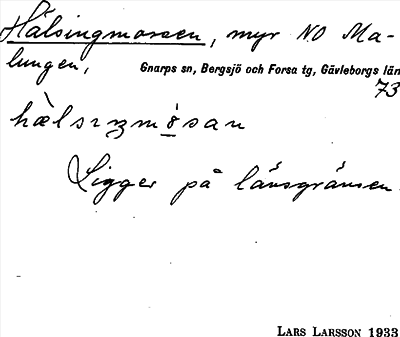 Hälsingmossen, myr NO Ma-
lungen,
Gnarps sn, Bergsjö och Forsa tg, Gävleborgs län
73
Ligger på länsgränsen.
LARS LARSSON 1933